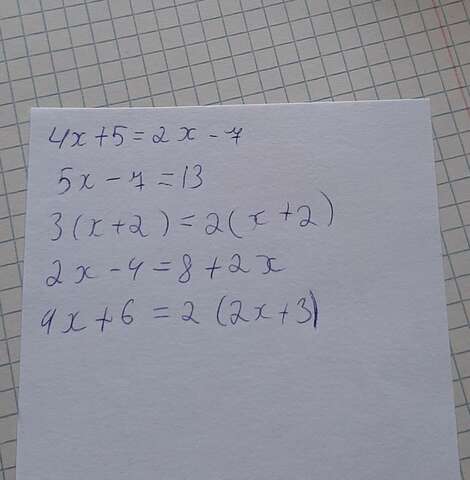 4x+5=2x-7
5x-7=13
3(x+2)=2(x+2)
2x-4=8+2x
4x+6=2(2x+3)